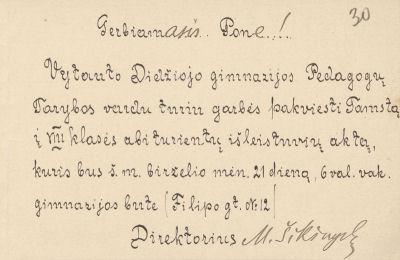 30
Gerbiamasis Pone!
Vytauto Didžiojo gimnazijos Pedagogų
Tarybos vardu turiu garbės pakviesti Tamstą
į VIII klasės abiturientų išleistuvių aktą,
kuris bus š.m. birželio mėn. 21 dieną, 6 val. vak.
gimnazijos bute (Filipo gt. № 12)
Direktorius M. Šikšnys